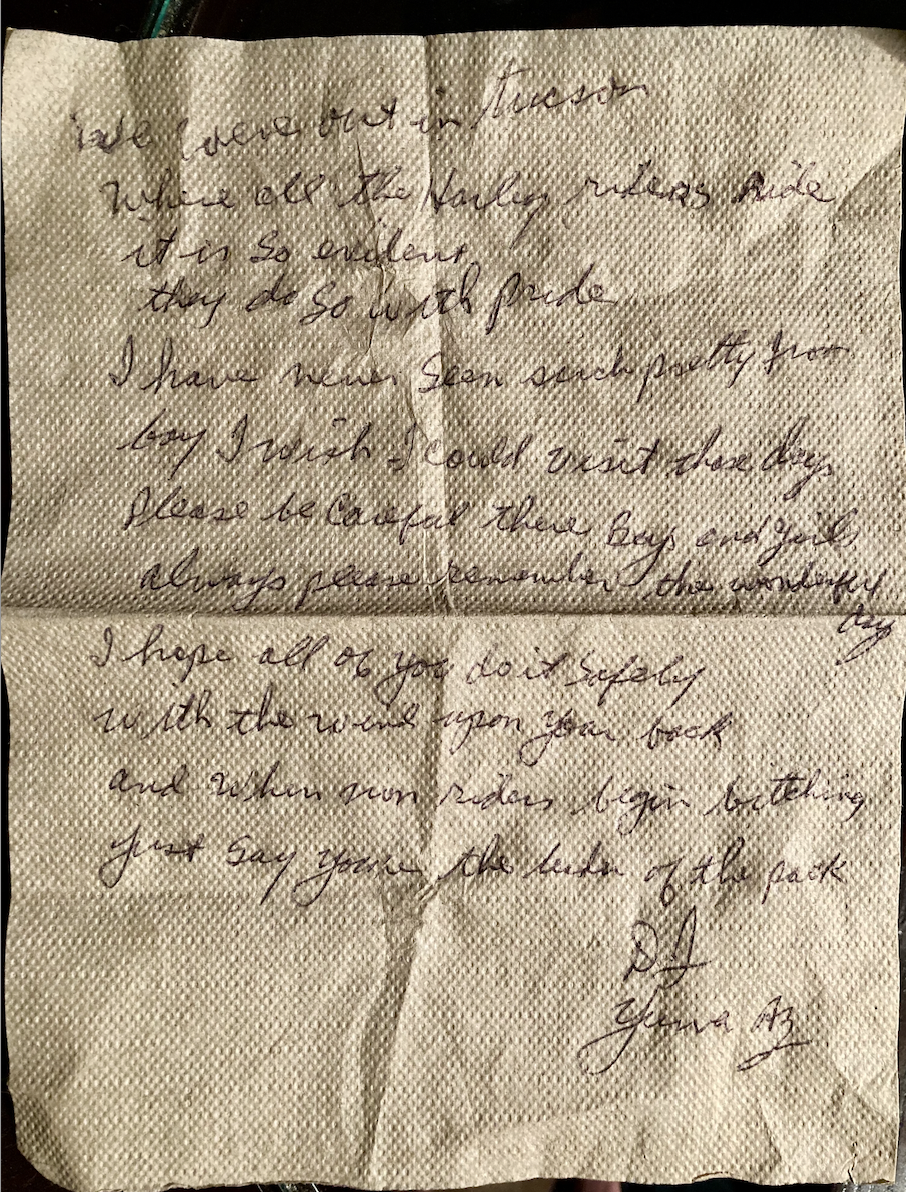 We were out in Tucson
Where all the Harley riders Ride
it is So evident
they do So with pride
I have never Seen such pretty Iron
boy I wish I could visit those days
Please be Careful there Boys and girls
always please remember the wonderful
day
I hope all of you do it Safely
with the wind upon your back
and when non riders begin bitching
just Say you're the leader of the pack
DJ
Yuma AZ